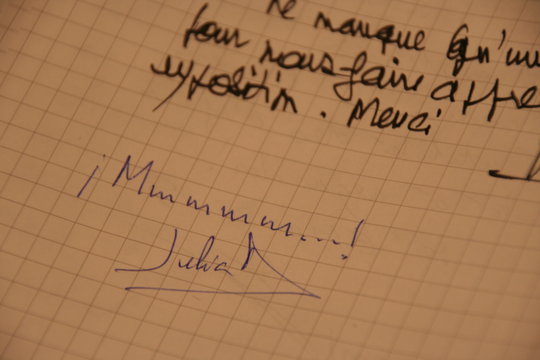 ne manque qu'un
pour nous faire
exposition. Merci
¡Mmmmmm...!
Julia